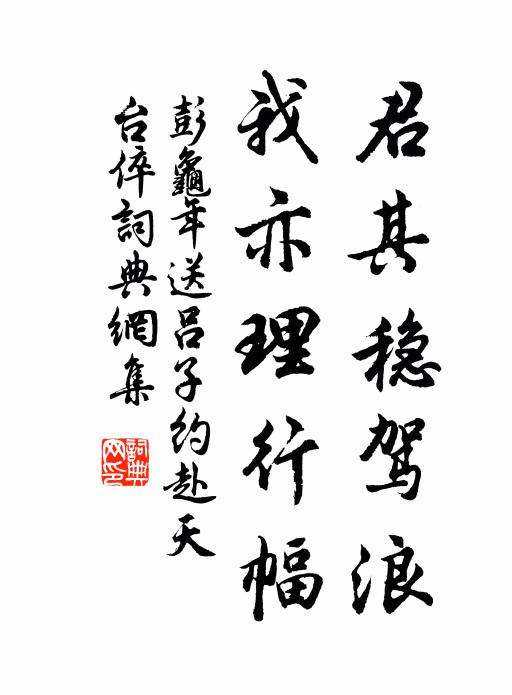 君其稳驾浪
我亦理行幅
彭龜年送吕子约赴天
台倅詞典網集
詞典
网印